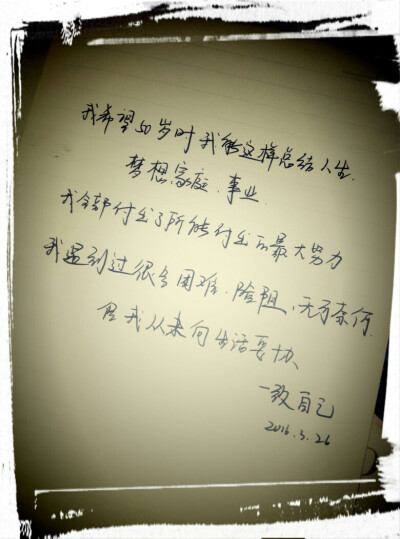 我希望50岁时我能这样总结人生.
梦想、家庭、事业.
我全部付出了所能付出的最大努力
我遇到过很多困难、险阻、无可奈何.
但我从未向生活妥协
一致自己
2016.3.26